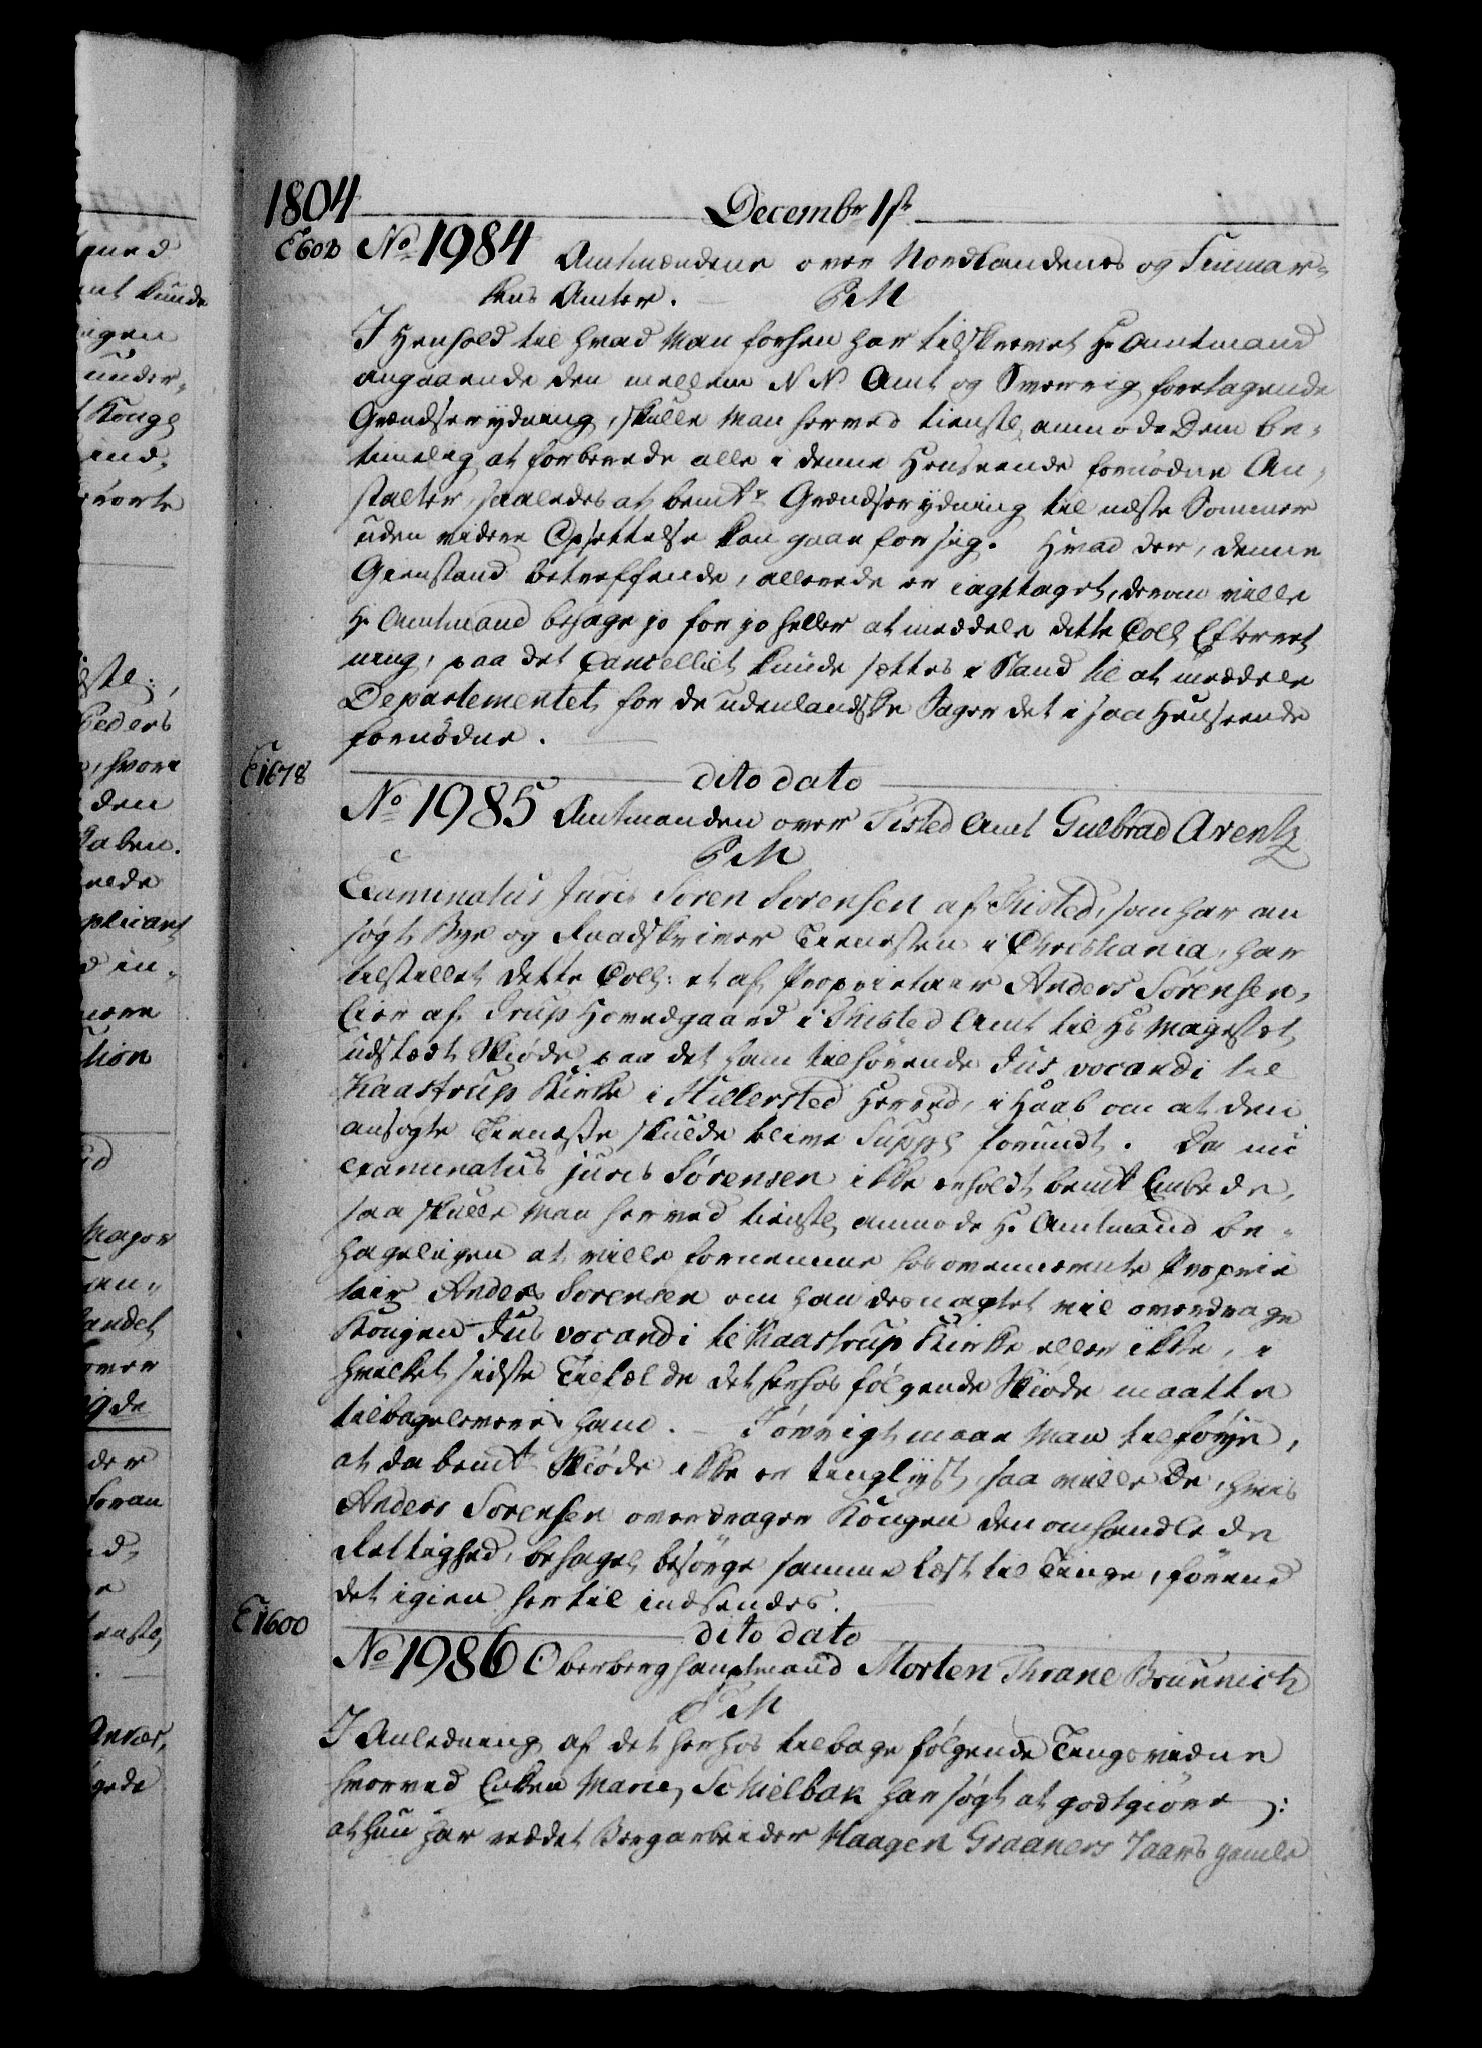 1804
Decembr 1ste
E602 No 1984 Amtmændene over Nordlandenes og Finmar-
kens Amter. P M
I Henhold til hvad Man forhen har tilskrevet Hr Amtmand
angaaende den mellem N N Amt og Sverrig foretagende
Grændserydning, skulle Man herved tienstl anmode Dem be-
timelig at forberede alle i denne Henseende fornødne An-
stalter, saaledes at bemte Grændserydning til næste Sommer
uden videre Opsættelse kan gaae for sig. Hvad der, denne
Gienstand betreffende, allerede er iagttaget, derom ville
Hr Amtmand behage jo før jo heller at meddele dette Coll Efterret
ning, paa det Cancelliet kunde sættes i Stand til at meddele
Departementet for de udenlandske Sager det i saa Henseende
fornødne.
E1678 dito dato
No 1985 Amtmanden over Tisted Amt Gulbrad Arentz
P M
Examinatus Juris Søren Sørensen af Thisted, som har an
søgt Bye og Raadskriver Tienesten i Christiania, har
tilstillet dette Coll: et af Proprietair Anders Sørensen,
Eier af Irup Hovedgaard i Thisted Amt til Hs Majestet
udstædt Skiøde paa det ham tilhørende Jus vocandi til
Kaastrup Kirke i Hillersted Herred, i Haab om at den
ansøgte Tieneste skulde blive Suppl forundt. Da nu
examinatus juris Sørensen ikke erholdt bemte Embede,
saa skulle Man herved tienstl anmode Hr Amtmand be-
hageligen at ville fornemme hos ovennævnte Proprie
tair Anders Sørensen om han desuagtet vil overdrage
Kongen Jus vocandi til Kaastrup Kirke eller ikke, i
hvilket sidste Tilfælde det herhos følgende Skiøde maatte
tilbageleveres ham. – Iøvrigt maae Man tilføye,
at da bemte Skiøde ikke er tinglyst, saa ville De, hvis
Anders Sørensen overdrager Kongen den omhandlede
Rettighed, behagel besørge samme læst til Tinge, førend
det igien hertil indsendes.
E1600 dito dato
No 1986 Oberberghauptmand Morten Thrane Brünnich
P M
I Anledning af det herhos tilbage følgende Tingsvidne
hvorved Enken Marie Schielbak har søgt at godtgiøre:
at hun har reddet Bergarbeider Haagen Graaners 7 aars gamle